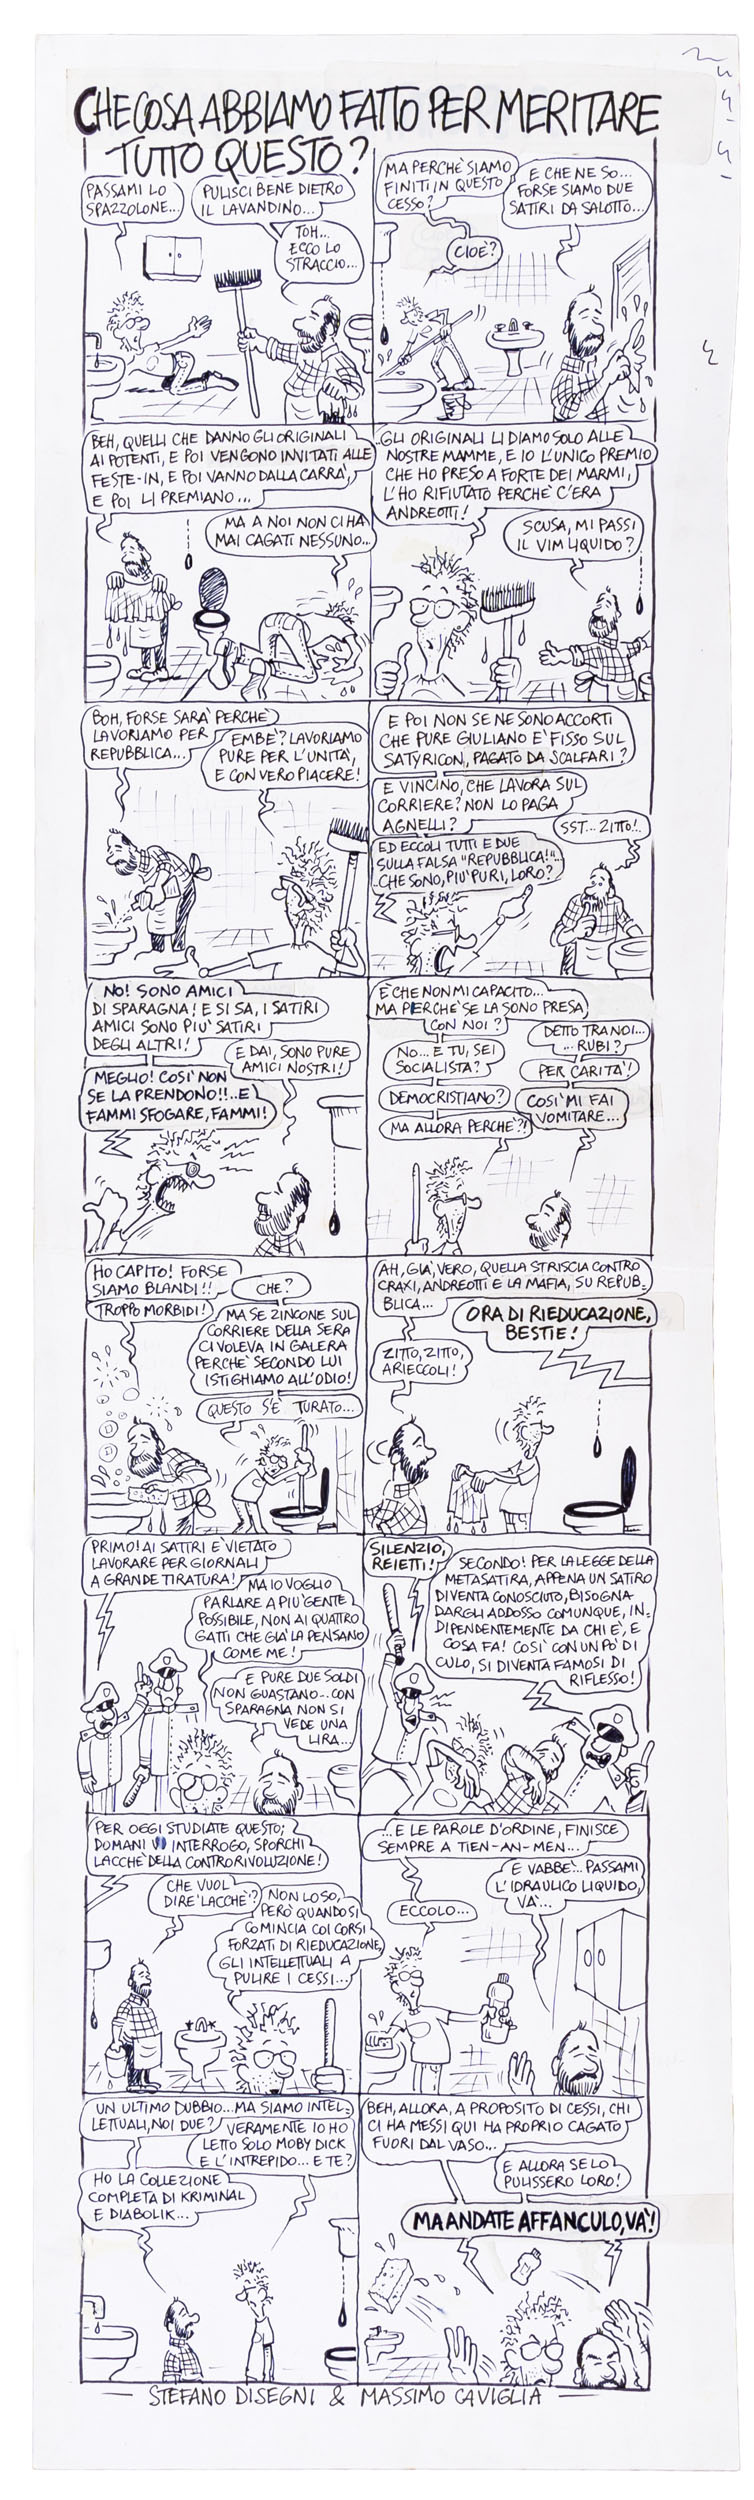 CHE COSA ABBIAMO FATTO PER MERITARE
TUTTO QUESTO?
PASSAMI LO
SPAZZOLONE...
PULISCI BENE DIETRO
IL LAVANDINO...
TOH...
ECCO LO
STRACCIO...
MA PERCHÈ SIAMO
FINITI IN QUESTO
CESSO?
E CHE NE SO...
FORSE SIAMO DUE
SATIRI DA SALOTTO...
CIOÈ?
BEH, QUELLI CHE DANNO GLI ORIGINALI
AI POTENTI, E POI VENGONO INVITATI ALLE
FESTE-IN, E POI VANNO DALLA CARRÀ,
E POI LI PREMIANO...
MA A NOI NON CI HA
MAI CAGATI NESSUNO...
GLI ORIGINALI LI DIAMO SOLO ALLE
NOSTRE MAMME, E IO L'UNICO PREMIO
CHE HO PRESO A FORTE DEI MARMI,
L'HO RIFIUTATO PERCHÈ C'ERA
ANDREOTTI!
SCUSA, MI PASSI
IL VIM LIQUIDO?
BOH, FORSE SARÀ PERCHÈ
LAVORIAMO PER
REPUBBLICA...
EMBÈ? LAVORIAMO
PURE PER L'UNITÀ,
E CON VERO PIACERE!
E POI NON SE NE SONO ACCORTI
CHE PURE GIULIANO È FISSO SUL
SATYRICON, PAGATO DA SCALFARI?
E VINCINO, CHE LAVORA SUL
CORRIERE? NON LO PAGA
AGNELLI?
ED ECCOLI TUTTI E DUE
SULLA FALSA "REPUBBLICA!"...
..CHE SONO, PIÙ PURI, LORO?
SST... ZITTO!..
NO! SONO AMICI
DI SPARAGNA! E SI SA, I SATIRI
AMICI SONO PIÙ SATIRI
DEGLI ALTRI!
E DAI, SONO PURE
AMICI NOSTRI!
MEGLIO! COSÌ NON
SE LA PRENDONO!!..E
FAMMI SFOGARE, FAMMI!
È CHE NON MI CAPACITO...
MA PERCHÈ SE LA SONO PRESA
CON NOI?
DETTO TRA NOI...
...RUBI?
NO... E TU, SEI
SOCIALISTA?
PER CARITÀ!
DEMOCRISTIANO?
COSÌ MI FAI
VOMITARE...
MA ALLORA PERCHÈ?!
HO CAPITO! FORSE
SIAMO BLANDI!!
TROPPO MORBIDI!
CHE?
MA SE ZINCONE SUL
CORRIERE DELLA SERA
CI VOLEVA IN GALERA
PERCHÈ SECONDO LUI
ISTIGHIAMO ALL'ODIO!
QUESTO S'È TURATO...
AH, GIÀ, VERO, QUELLA STRISCIA CONTRO
CRAXI, ANDREOTTI E LA MAFIA, SU REPUB-
BLICA...
ORA DI RIEDUCAZIONE,
BESTIE!
ZITTO, ZITTO,
ARIECCOLI!
PRIMO! AI SATIRI È VIETATO
LAVORARE PER GIORNALI
A GRANDE TIRATURA!
MA IO VOGLIO
PARLARE A PIÙ GENTE
POSSIBILE, NON AI QUATTRO
GATTI CHE GIÀ LA PENSANO
COME ME!
E PURE DUE SOLDI
NON GUASTANO... CON
SPARAGNA NON SI
VEDE UNA
LIRA...
SILENZIO,
REIETTI!
SECONDO! PER LA LEGGE DELLA
METASATIRA, APPENA UN SATIRO
DIVENTA CONOSCIUTO, BISOGNA
DARGLI ADDOSSO COMUNQUE, IN-
DIPENDENTEMENTE DA CHI È, E
COSA FA! COSÌ CON UN PÒ DI
CULO, SI DIVENTA FAMOSI DI
RIFLESSO!
PER OGGI STUDIATE QUESTO;
DOMANI VI INTERROGO, SPORCHI
LACCHÈ DELLA CONTRORIVOLUZIONE!
CHE VUOL
DIRE "LACCHÈ"?
NON LO SO,
PERÒ QUANDO SI
COMINCIA COI CORSI
FORZATI DI RIEDUCAZIONE,
GLI INTELLETTUALI A
PULIRE I CESSI...
...E LE PAROLE D'ORDINE, FINISCE
SEMPRE A TIEN-AN-MEN...
E VABBÈ... PASSAMI
L'IDRAULICO LIQUIDO,
VÀ...
ECCOLO...
UN ULTIMO DUBBIO... MA SIAMO INTEL-
LETTUALI, NOI DUE?
VERAMENTE IO HO
LETTO SOLO MOBY DICK
E L'INTREPIDO... E TE?
HO LA COLLEZIONE
COMPLETA DI KRIMINAL
E DIABOLIK...
BEH, ALLORA, A PROPOSITO DI CESSI, CHI
CI HA MESSI QUI HA PROPRIO CAGATO
FUORI DAL VASO...
E ALLORA SE LO
PULISSERO LORO!
MA ANDATE AFFANCULO, VÀ!
STEFANO DISEGNI & MASSIMO CAVIGLIA